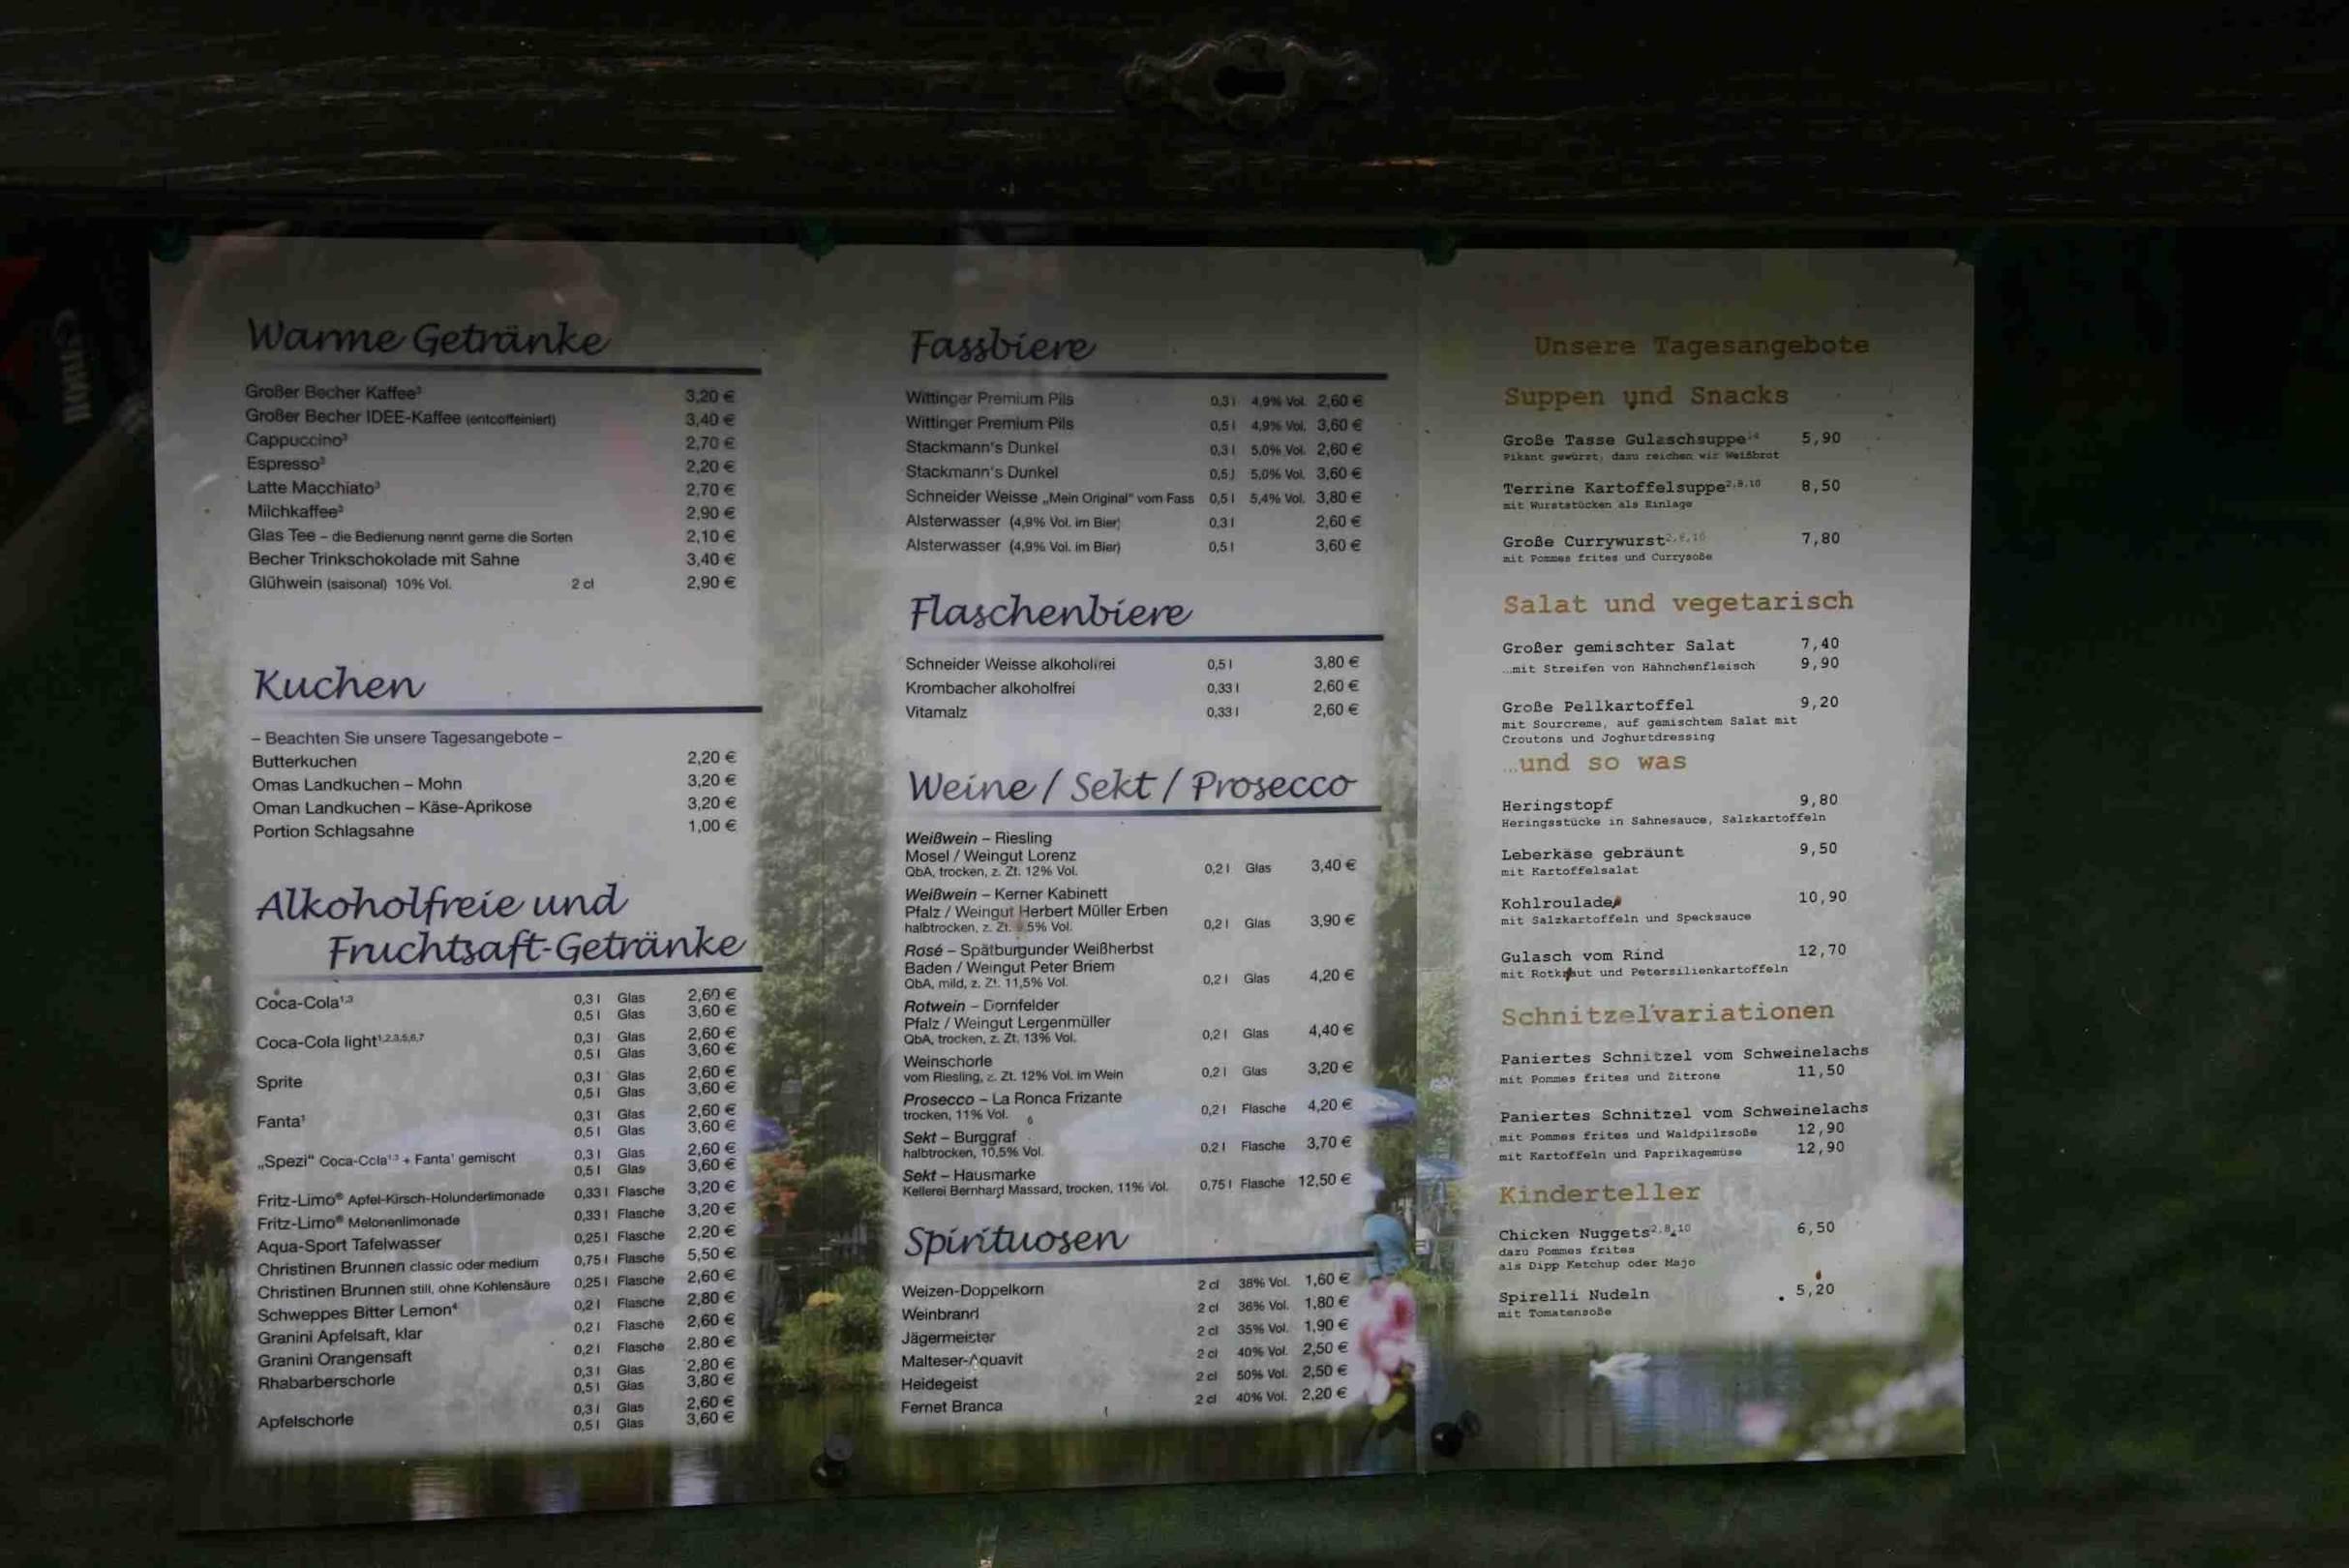 Warme Getränke
Großer Becher Kaffee³ 3,20 €
Großer Becher IDEE-Kaffee (entcoffeiniert) 3,40 €
Cappuccino³ 2,70 €
Espresso³ 2,20 €
Latte Macchiato³ 2,70 €
Milchkaffee³ 2,90 €
Glas Tee – die Bedienung nennt gerne die Sorten 2,10 €
Becher Trinkschokolade mit Sahne 3,40 €
Glühwein (saisonal) 10% Vol. 2 cl 2,90 €
Kuchen
– Beachten Sie unsere Tagesangebote –
Butterkuchen 2,20 €
Omas Landkuchen – Mohn 3,20 €
Oman Landkuchen – Käse-Aprikose 3,20 €
Portion Schlagsahne 1,00 €
Alkoholfreie und
Fruchtsaft-Getränke
Coca-Cola¹·³ 0,3 l Glas 2,60 €
0,5 l Glas 3,60 €
Coca-Cola light¹·²·³·⁵·⁶·⁷ 0,3 l Glas 2,60 €
0,5 l Glas 3,60 €
Sprite 0,3 l Glas 2,60 €
0,5 l Glas 3,60 €
Fanta¹ 0,3 l Glas 2,60 €
0,5 l Glas 3,60 €
„Spezi“ Coca-Cola¹·³ + Fanta¹ gemischt 0,3 l Glas 2,60 €
0,5 l Glas 3,60 €
Fritz-Limo® Apfel-Kirsch-Holunderlimonade 0,33 l Flasche 3,20 €
Fritz-Limo® Melonenlimonade 0,33 l Flasche 3,20 €
Aqua-Sport Tafelwasser 0,25 l Flasche 2,20 €
Christinen Brunnen classic oder medium 0,75 l Flasche 5,50 €
Christinen Brunnen still, ohne Kohlensäure 0,25 l Flasche 2,60 €
Schweppes Bitter Lemon⁴ 0,2 l Flasche 2,80 €
Granini Apfelsaft, klar 0,2 l Flasche 2,60 €
Granini Orangensaft 0,2 l Flasche 2,80 €
Rhabarberschorle 0,3 l Glas 2,80 €
0,5 l Glas 3,80 €
Apfelschorle 0,3 l Glas 2,60 €
0,5 l Glas 3,60 €
Fassbiere
Wittinger Premium Pils 0,3 l 4,9% Vol. 2,60 €
Wittinger Premium Pils 0,5 l 4,9% Vol. 3,60 €
Stackmann's Dunkel 0,3 l 5,0% Vol. 2,60 €
Stackmann's Dunkel 0,5 l 5,0% Vol. 3,60 €
Schneider Weisse „Mein Original“ vom Fass 0,5 l 5,4% Vol. 3,80 €
Alsterwasser (4,9% Vol. im Bier) 0,3 l 2,60 €
Alsterwasser (4,9% Vol. im Bier) 0,5 l 3,60 €
Flaschenbiere
Schneider Weisse alkoholfrei 0,5 l 3,80 €
Krombacher alkoholfrei 0,33 l 2,60 €
Vitamalz 0,33 l 2,60 €
Weine / Sekt / Prosecco
Weißwein – Riesling
Mosel / Weingut Lorenz
QbA, trocken, z. Zt. 12% Vol. 0,2 l Glas 3,40 €
Weißwein – Kerner Kabinett
Pfalz / Weingut Herbert Müller Erben
halbtrocken, z. Zt. 5% Vol. 0,2 l Glas 3,90 €
Rosé – Spätburgunder Weißherbst
Baden / Weingut Peter Briem
QbA, mild, z. Zt. 11,5% Vol. 0,2 l Glas 4,20 €
Rotwein – Dornfelder
Pfalz / Weingut Lergenmüller
QbA, trocken, z. Zt. 13% Vol. 0,2 l Glas 4,40 €
Weinschorle
vom Riesling, z. Zt. 12% Vol. im Wein 0,2 l Glas 3,20 €
Prosecco – La Ronca Frizante
trocken, 11% Vol. 0,2 l Flasche 4,20 €
Sekt – Burggraf
halbtrocken, 10,5% Vol. 0,2 l Flasche 3,70 €
Sekt – Hausmarke
Kellerei Bernhard Massard, trocken, 11% Vol. 0,75 l Flasche 12,50 €
Spirituosen
Weizen-Doppelkorn 2 cl 38% Vol. 1,60 €
Weinbrand 2 cl 36% Vol. 1,80 €
Jägermeister 2 cl 35% Vol. 1,90 €
Malteser-Aquavit 2 cl 40% Vol. 2,50 €
Heidegeist 2 cl 50% Vol. 2,50 €
Fernet Branca 2 cl 40% Vol. 2,20 €
Unsere Tagesangebote
Suppen und Snacks
Große Tasse Gulaschsuppe 5,90
Pikant gewürzt, dazu reichen wir Weißbrot
Terrine Kartoffelsuppe²·⁸·¹⁰ 8,50
mit Wurststücken als Einlage
Große Currywurst²·⁸·¹⁰ 7,80
mit Pommes frites und Currysoße
Salat und vegetarisch
Großer gemischter Salat 7,40
…mit Streifen von Hähnchenfleisch 9,90
Große Pellkartoffel 9,20
mit Sourcreme, auf gemischtem Salat mit
Croutons und Joghurtdressing
…und so was
Heringstopf 9,80
Heringsstücke in Sahnesauce, Salzkartoffeln
Leberkäse gebräunt 9,50
mit Kartoffelsalat
Kohlroulade 10,90
mit Salzkartoffeln und Specksauce
Gulasch vom Rind 12,70
mit Rotkraut und Petersilienkartoffeln
Schnitzelvariationen
Paniertes Schnitzel vom Schweinelachs
mit Pommes frites und Zitrone 11,50
Paniertes Schnitzel vom Schweinelachs
mit Pommes frites und Waldpilzsoße 12,90
mit Kartoffeln und Paprikagemüse 12,90
Kinderteller
Chicken Nuggets²·⁸·¹⁰ 6,50
dazu Pommes frites
als Dipp Ketchup oder Majo
Spirelli Nudeln 5,20
mit Tomatensoße